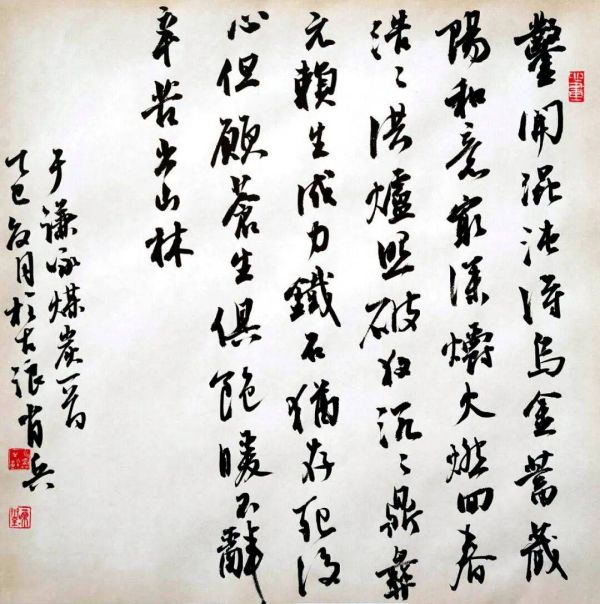 鑿開混沌得烏金蓄藏
陽和意最深爝火燃回春
浩〻洪爐照破夜沉〻鼎彝
元賴生成力鐵石猶存死後
心但願蒼生俱飽暖不辭
辛苦出山林
于謙詠煤炭一首
乙巳月於古浪肖兵